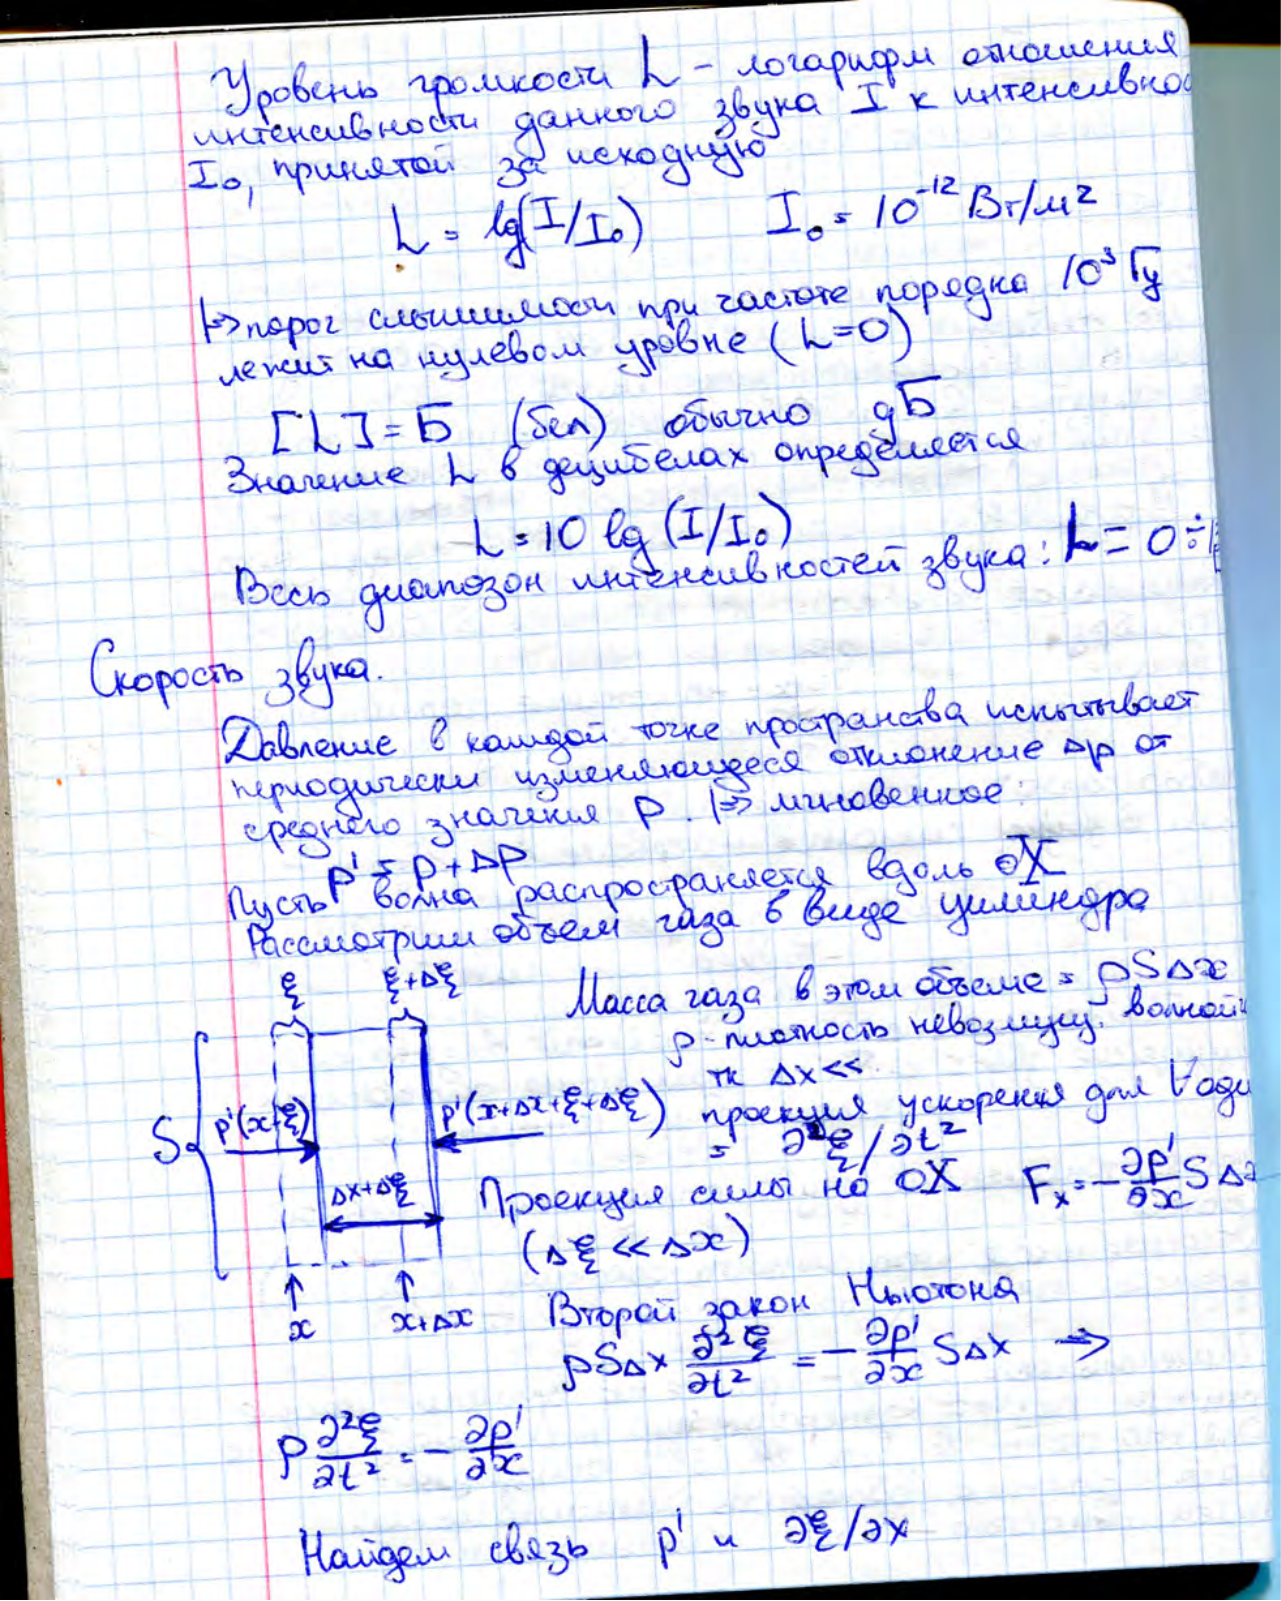 Уровень громкости L – логарифм отношения
интенсивности данного звука I к интенсивнос
I₀, принятой за исходную
L = lg(I/I₀) I₀ = 10⁻¹² Вт/м²
|=> порог слышимости при частоте порядка 10³ Гц
лежит на нулевом уровне (L=0)
[L] = Б (бел) обычно дБ
Значение L в децибелах определяется
L = 10 lg (I/I₀)
Весь диапозон интенсивностей звука: L = 0 ÷
Скорость звука.
Давление в каждой точке пространства испытывает
периодически изменяющееся отклонение Δp от
среднего значения p. |=> мгновенное:
p' = p + Δp
Пусть волна распространяется вдоль OX
Рассмотрим объем газа в виде цилиндра
ξ ξ+Δξ
Масса газа в этом объеме = ρSΔx
ρ - плотность невозмущ. волной
тк Δx <<
S p'(x+ξ) p'(x+Δx+ξ+Δξ) проекция ускорения для ∀ оди
= ∂²ξ/∂t²
Δx+Δξ Проекция силы на OX Fₓ = -∂p'/∂x SΔx
(Δξ << Δx)
x x+Δx Второй закон Ньютона
ρSΔx ∂²ξ/∂t² = -∂p'/∂x SΔx =>
ρ ∂²ξ/∂t² = - ∂p'/∂x
Найдем связь p' и ∂ξ/∂x